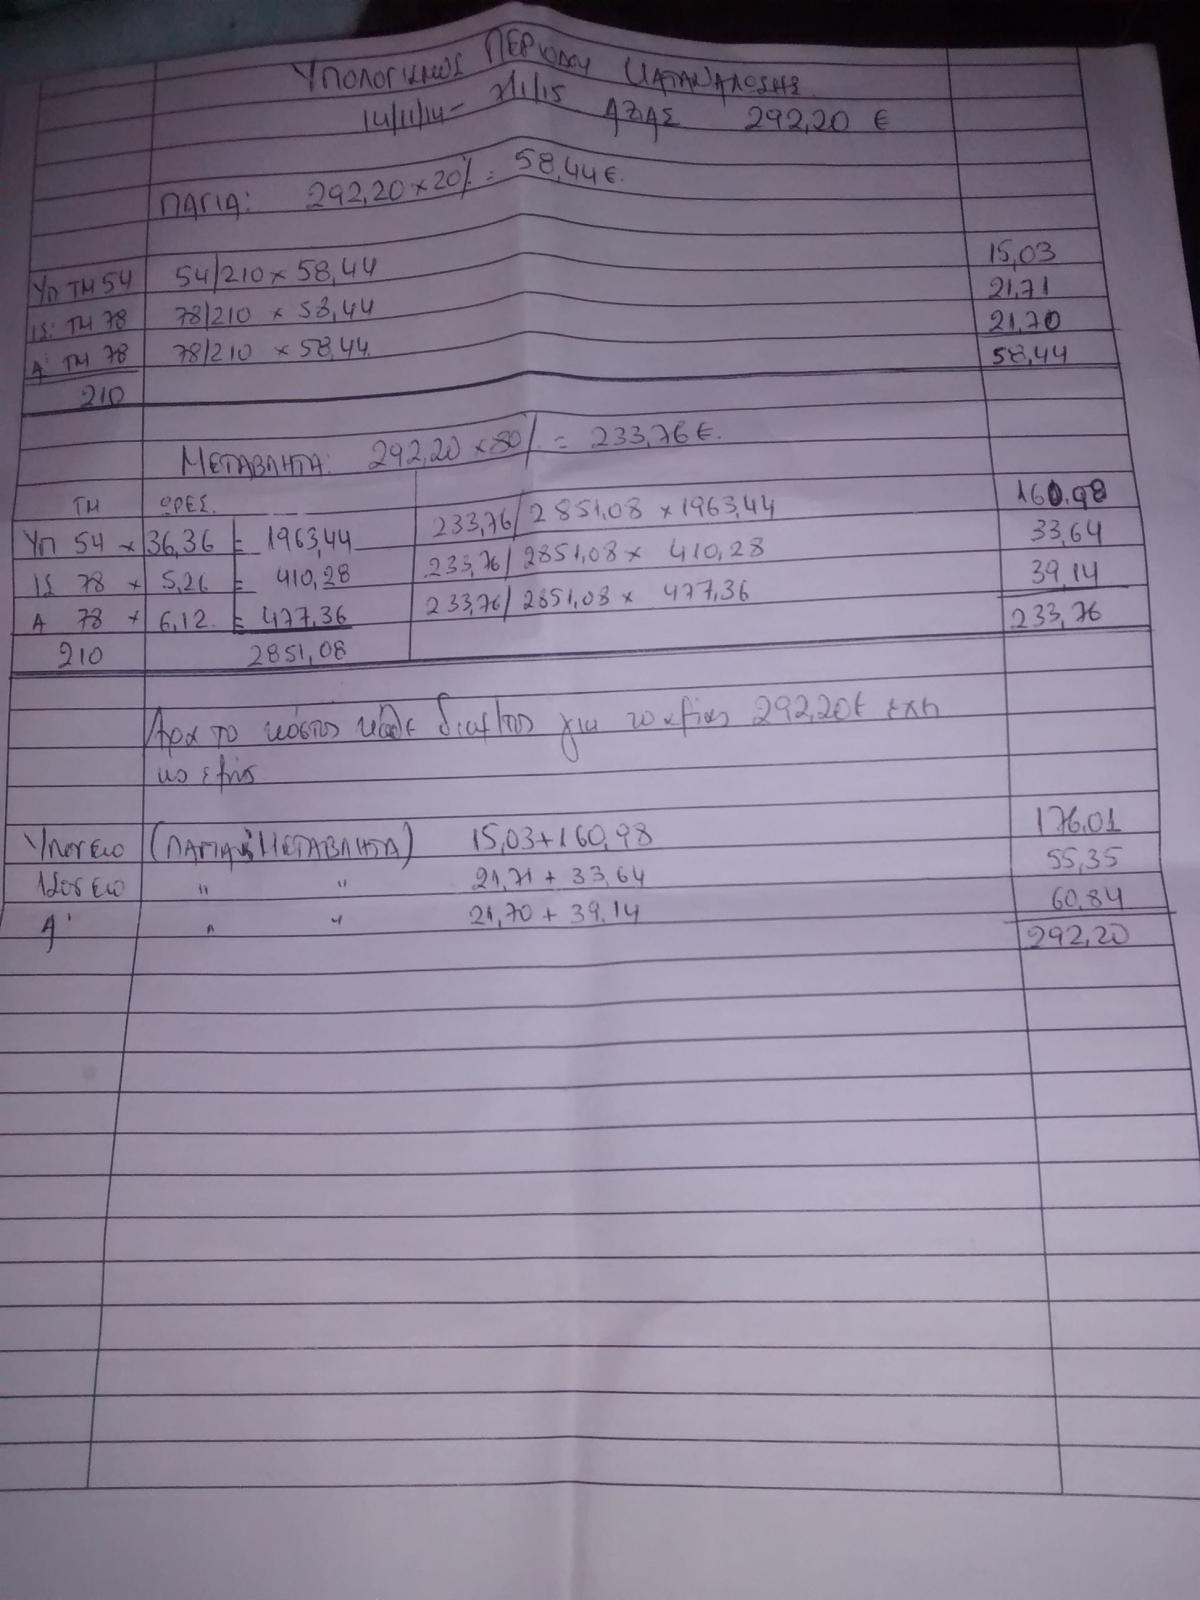 ΥΠΟΛΟΓΙΣΜΟΣ ΠΕΡΙΟΔΟΥ ΚΑΤΑΝΑΛΩΣΗΣ
14/11/14 - 7/1/15 ΑΞΙΑΣ 292,20 €
ΠΑΓΙΑ: 292,20 × 20% = 58,44 €.
ΥΠ ΤΜ 54 54/210 × 58,44 15,03
ΙΣ: ΤΜ 78 78/210 × 58,44 21,71
Α' ΤΜ 78 78/210 × 58,44 21,70
210 58,44
ΜΕΤΑΒΛΗΤΑ: 292,20 × 80% = 233,76 €.
ΤΜ ΩΡΕΣ.
ΥΠ 54 × 36,36 = 1963,44 233,76/2851,08 × 1963,44 160,98
ΙΣ 78 × 5,26 = 410,28 233,76/2851,08 × 410,28 33,64
Α 78 × 6,12 = 477,36 233,76/2851,08 × 477,36 39,14
210 2851,08 233,76
Αρα το κόστος κάθε διαμ/τος για το 292,20€ έχει
ως εξής
Υπογειο (ΠΑΓΙΑ & ΜΕΤΑΒΛΗΤΑ) 15,03 + 160,98 176,01
Ισογειο " " 21,71 + 33,64 55,35
Α' " " 21,70 + 39,14 60,84
292,20